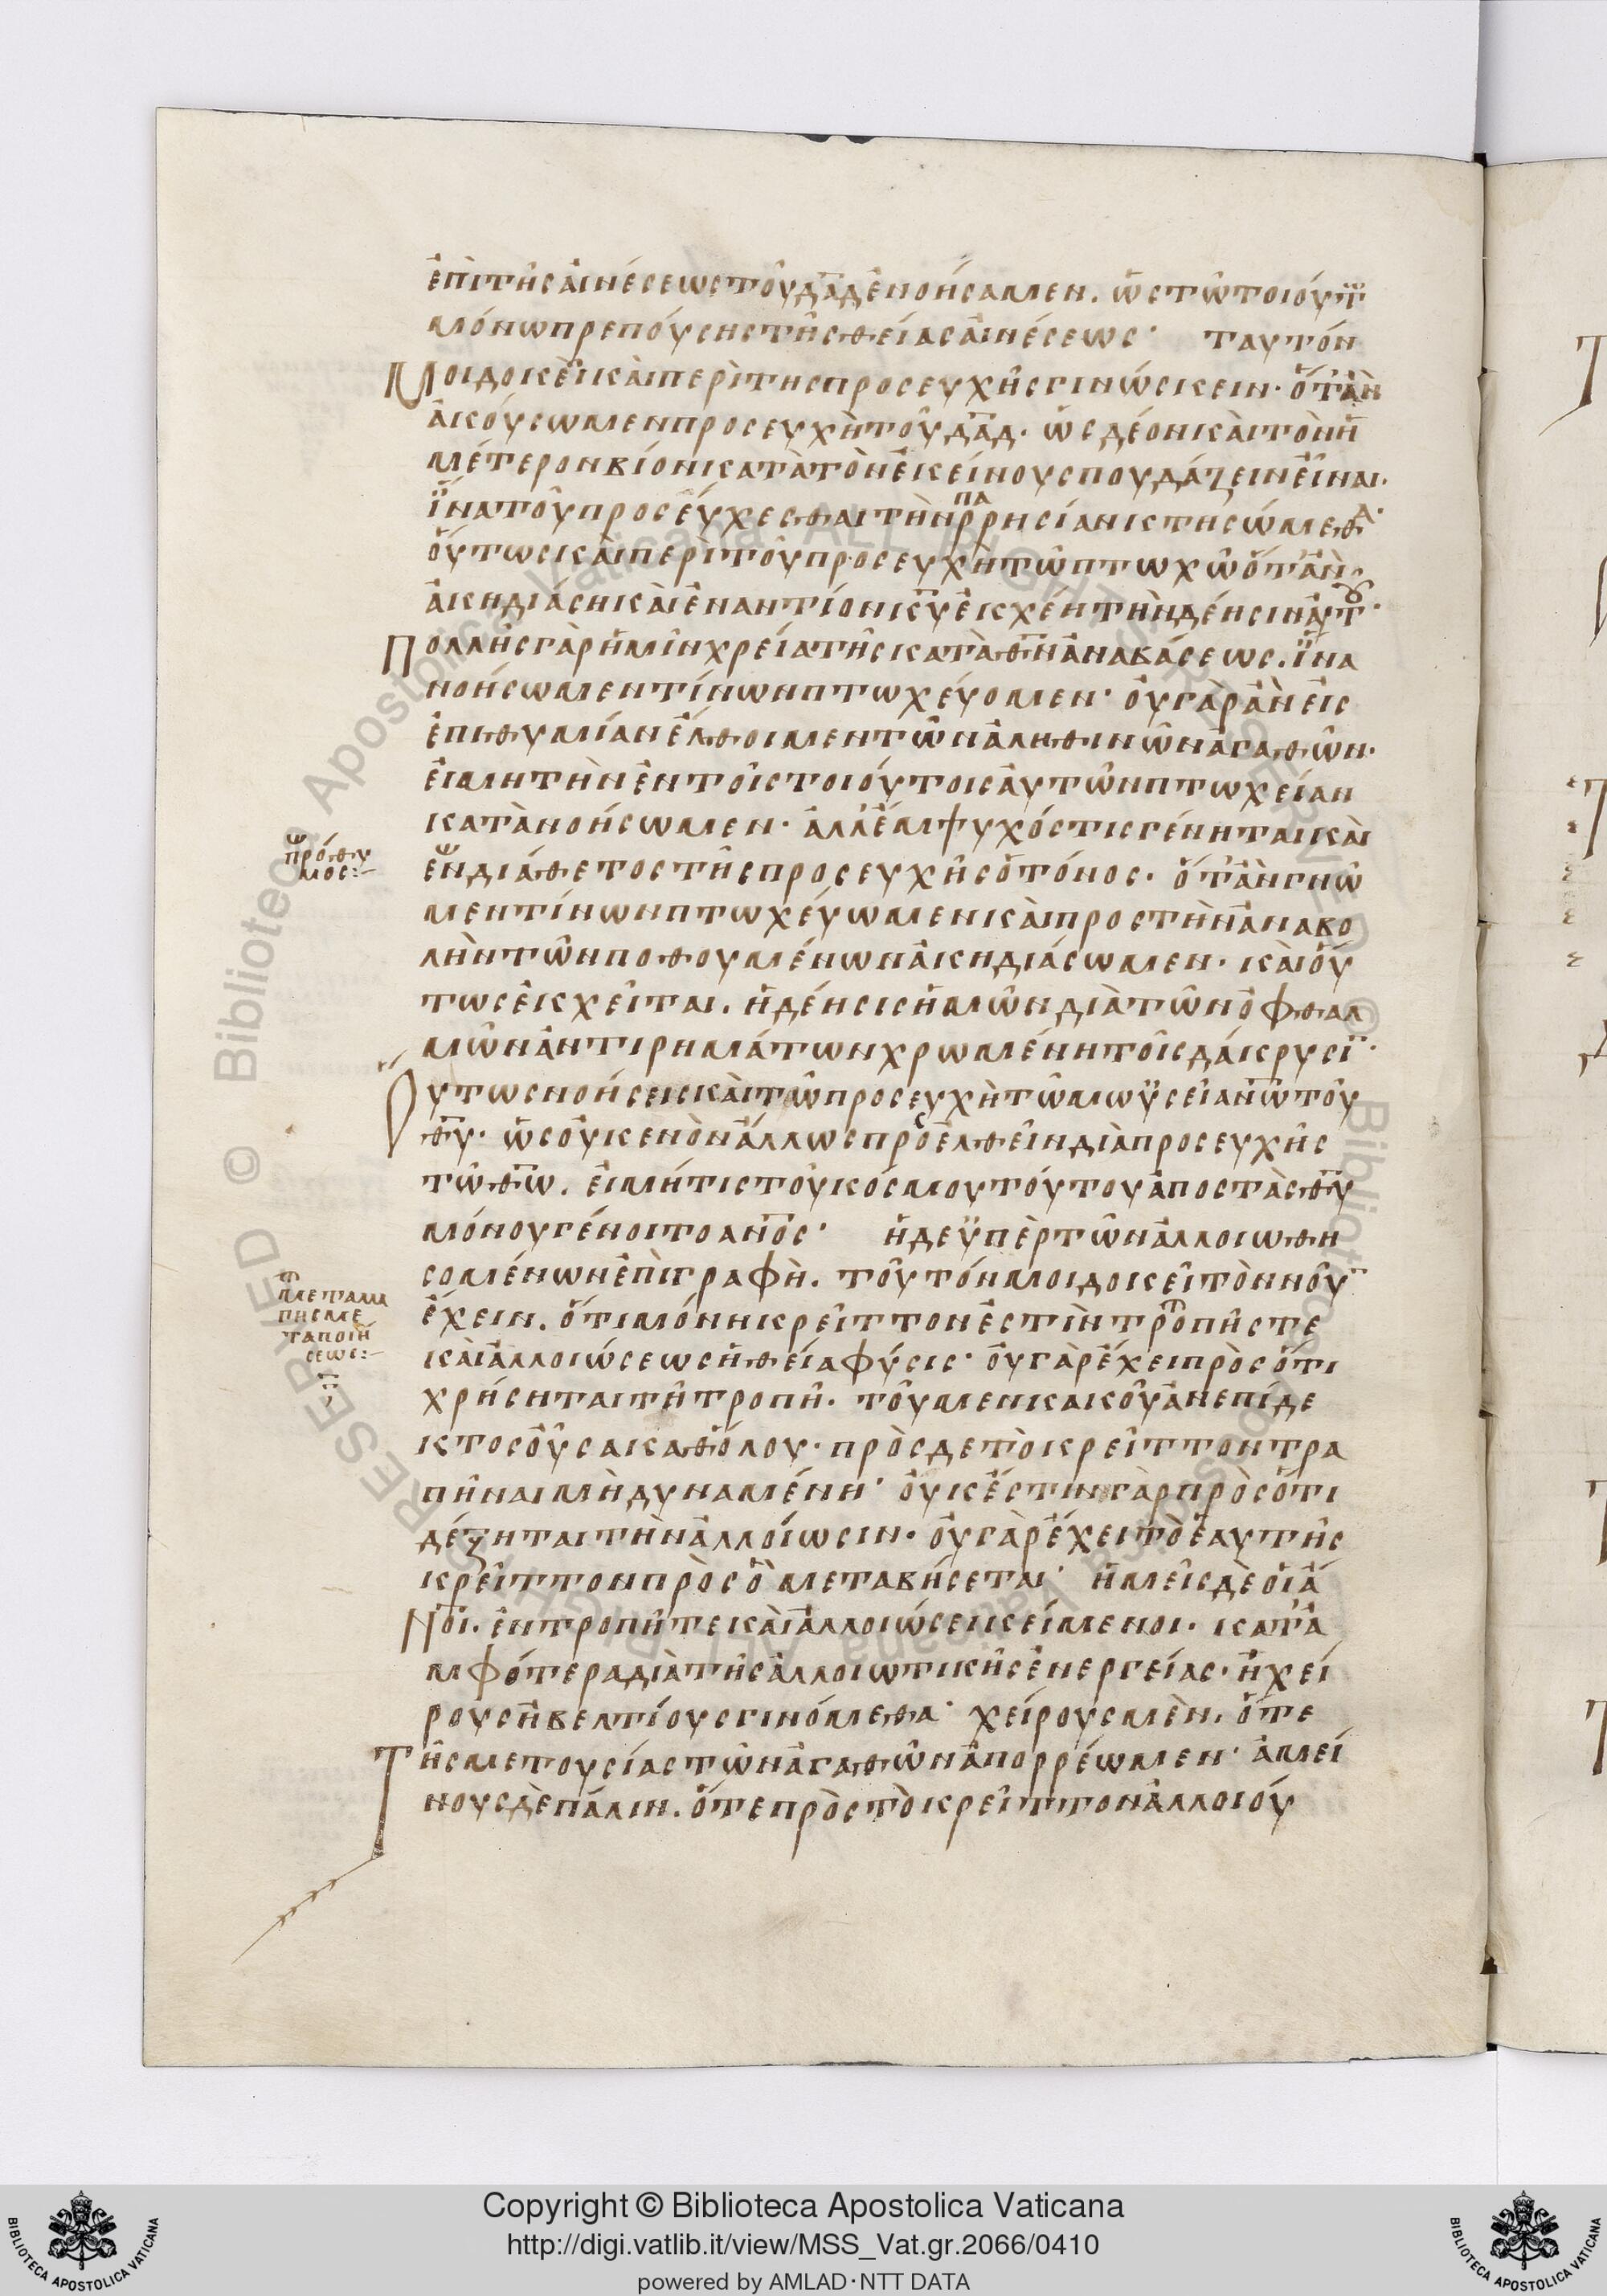 ἐπὶ τῆς αἰνέσεως τοῦ δαδ ἐνοήσαμεν. ὡς τῶ τοιούτ
μόνω πρεπούσης τῆς θείας αἰνέσεως· ταυτόν
μοι δοκεῖ καὶ περὶ της προσευχῆς γινώσκειν· ὅτ' ἂν
ἀκούσωμεν προσευχὴ τοῦ δαδ· ὡς δέον καὶ τὸν ἡ
μέτερον βίον κατὰ τὸν ἐκείνου σπουδάζειν εἶναι.
ἵνα τοῦ προσεύχεσθαι τὴν παρρησίαν κτησώμεθα·
οὕτως καὶ περὶ τοῦ προσευχὴ τῶ πτωχῶ ὅτ' ἂν
ἀκηδιάση καὶ ἐναντίον κυ ἐκχέη τὴν δέησιν αὐτου·
Πολλῆς γὰρ ἡμῖν χρεία τῆς κατὰ θν ἀναβάσεως. ἵνα
νοήσωμεν τίνων πτωχεύομεν· οὐ γὰρ ἂν εἰς
ἐπιθυμίαν ἔλθοιμεν τῶν ἀληθινῶν ἀγαθῶν.
εἰ μη τὴν ἐν τοῖς τοιούτοις αὐτῶν πτωχείαν
κατὰνοήσωμεν· ἀλλ' ἔμψυχός τις γένηται καὶ
πρόθυ
μος:
ἐνδιάθετος της προσευχῆς ὁ τόνος· ὅτ' ἂν γνῶ
μεν τίνων πτωχεύωμεν καὶ προς τὴν ἀναβο
λὴν τῶν ποθουμένων ἀκηδιάσωμεν· καὶ οὕ
τως ἐκχεῖται. ἡ δέησις ἡμῶν διὰ τῶν ὀφθαλ
μῶν ἀντι ρημάτων χρωμένη τοῖς δάκρυσι·
Οὕτως νοήσεις καὶ τῶ προσευχὴ τῶ μωϋσεῖ ανω τοῦ
θυ· ὡς οὐκ ἐνὸν ἄλλως προσελθεῖν διὰ προσευχῆς
τῶ θω. εἰ μή τις τοῦ κόσμου τούτου ἀποστὰς θυ
μόνου γένοιτο ανος· ἡ δε ϋπὲρ τῶν ἀλλοιωθη
σομένων ἐπιγραφὴ. τοῦτόν μοι δοκεῖ τὸν νοῦ
ἔχειν. ὅτι μόνη κρεῖττον ἐστὶν τροπῆς τε
μεταλη
πης με
ταποιη
σεως:
καὶ ἀλλοιώσεως ἡ θεία φύσις· οὐ γὰρ ἔχει πρὸς ὅτι
χρήσηται τῆ τροπῆ. τοῦ μεν κακοῦ ἀνεπίδε
κτος οὖσα καθόλου· πρὸς δε τὸ κρεῖττον τρα
πῆναι μὴ δυναμένη· οὐκ ἔστιν γὰρ πρὸς ὅτι
δέξηται τὴν ἀλλοίωσιν. οὐ γὰρ ἔχει τὸ ἑαυτῆς
κρεῖττον πρὸς ὃ μεταβήσεται· ἡμεῖς δὲ οἱ ἄ
Νοι. ἐν τροπῆ τε καὶ ἀλλοιώσει κείμενοι. κατ' ἀ
μφότερα διὰ τῆς ἀλλοιωτικῆς ἐνεργείας. ἢ χεί
ρους ἢ βελτίους γινόμεθα· χείρους μὲν. ὅτε
Τῆς μετουσίας τῶν ἀγαθῶν ἀπορρέωμεν· ἀμεί
νους δὲ πάλιν. ὅτε πρὸς τὸ κρεῖττον ἀλλοιού
Copyright © Biblioteca Apostolica Vaticana
http://digi.vatlib.it/view/MSS_Vat.gr.2066/0410
powered by AMLAD·NTT DATA